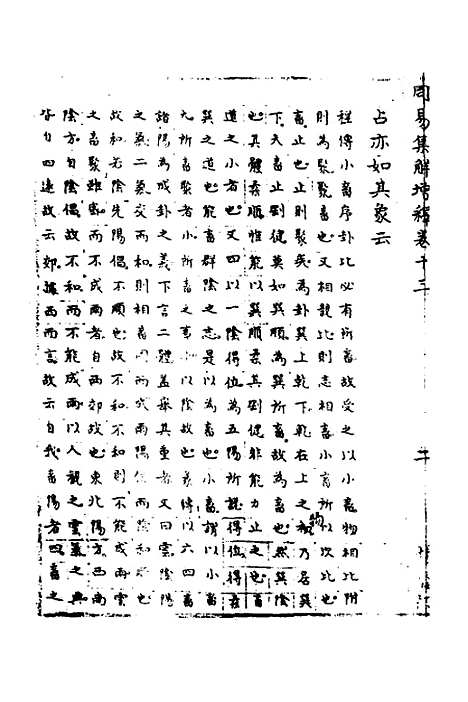 周易集解增釋卷十三
占亦如其象云
程傳小畜序卦比必有所畜故受之以小畜物相比附
則為聚聚畜也又相親比則志相畜小畜所以次比也
畜止也止則聚矣為卦巽上乾下乾在上之物乃居巽
下夫畜止剛健莫如巽順為巽所畜故為畜也然巽陰
也其體柔順惟能以巽順柔其剛健非能力止之也畜
道之小者也又四以一陰得位為五陽所說得位得柔
巽之道也能畜群陰之志是以為畜也小畜謂以小畜
大所畜聚者小所畜之事小以陰故也彖傳以六四畜
諸陽為成卦之義不言二體蓋舉其重者又曰雲陰陽
之氣二氣交而和則相畜固而成雨陽倡而陰和順也
故和若陰先陽倡不順也故不和不和則不能成雨雲
之畜聚雖密而不成雨者自西郊故也東北陽方西南
陰方自陰倡故不和而不能成雨以人觀之雲氣之興
皆自四遠故云郊據西而言故云自我畜陽者四畜之